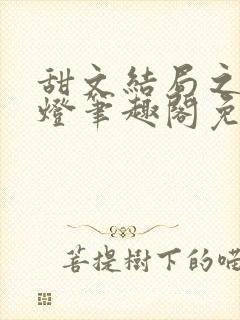 甜文結局之
燈筆趣閣免
菩提樹下的喵